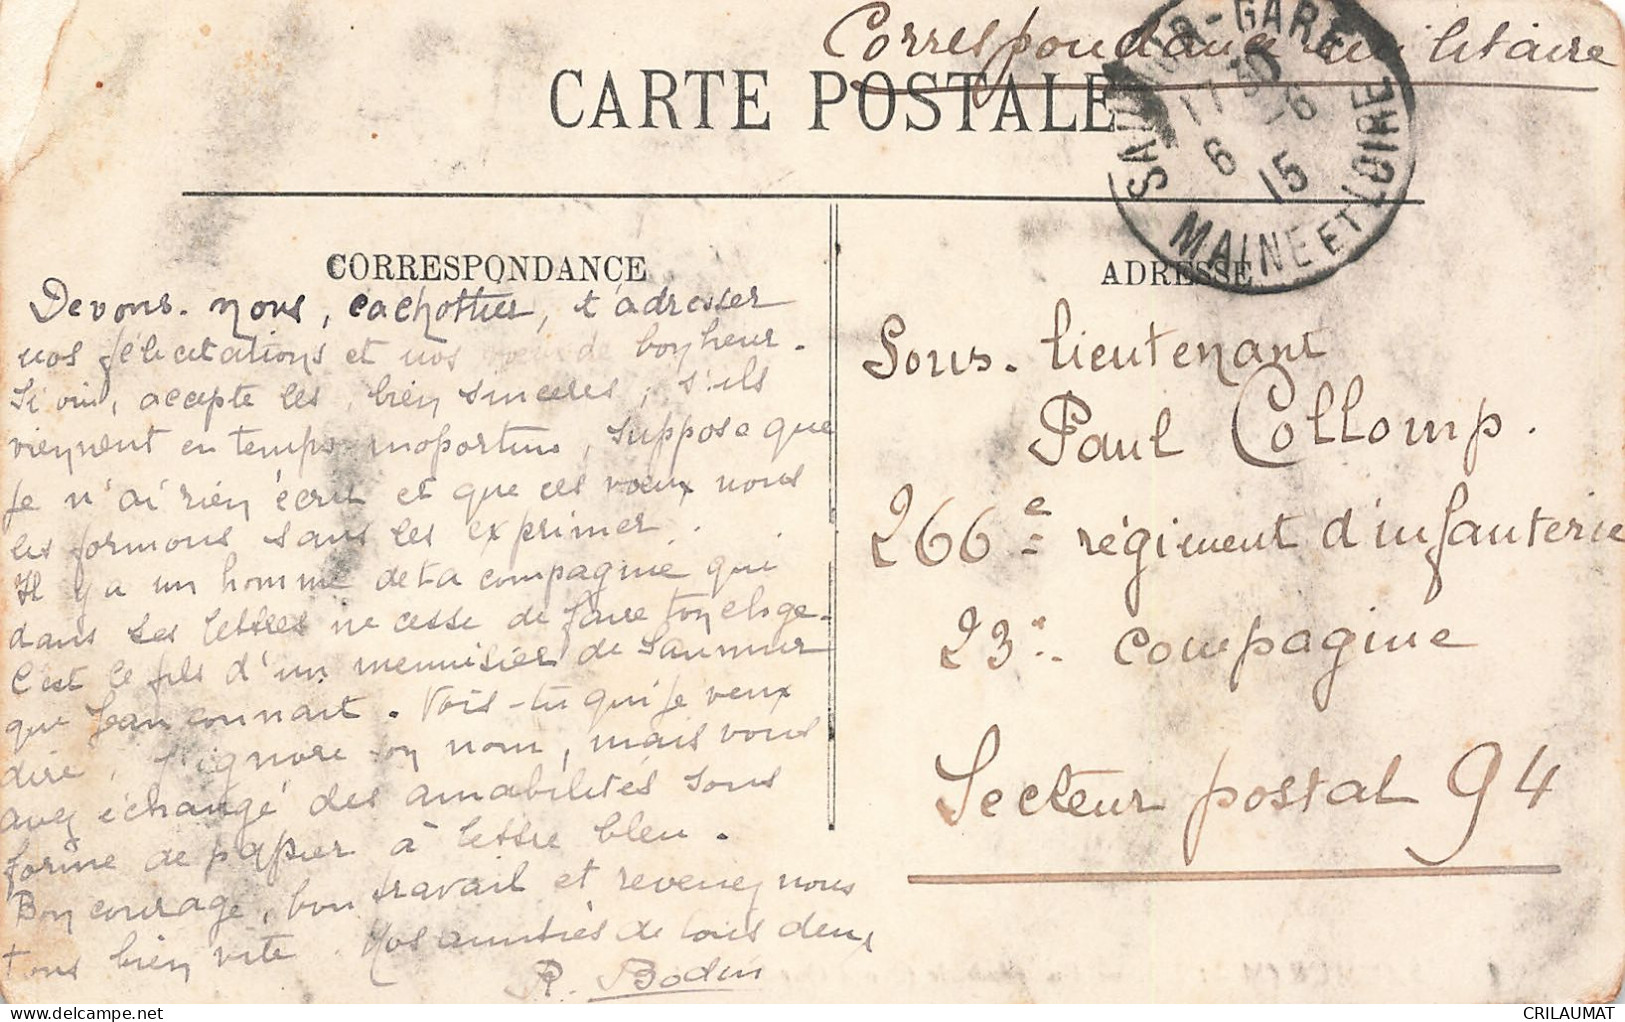 Correspondance militaire
CARTE POSTALE
SAUMUR-GARE
17 30
6 -6
15
MAINE ET LOIRE
CORRESPONDANCE
Devons-nous, cachottier, t'adresser
nos félicitations et nos vœux de bonheur.
Si oui, accepte les, bien sincères, s'ils
viennent en temps inoportun, suppose que
je n'ai rien écrit et que ces vœux nous
les formons sans les exprimer.
Il y a un homme de ta compagnie qui
dans ses lettres ne cesse de faire ton eloge.
C'est le fils d'un menuisier de Saumur
que Jean connait. Vois-tu qui je veux
dire, j'ignore son nom, mais vous
avez échangé des amabilités sous
forme de papier à lettre bleu.
Bon courage, bon travail et revenez nous
tous bien vite. Nos amitiés de tous deux
R. Bodin
ADRESSE
Sous-lieutenant
Paul Collomp.
266e régiment d'infanterie
23e compagnie
Secteur postal 94
CRILAUMAT